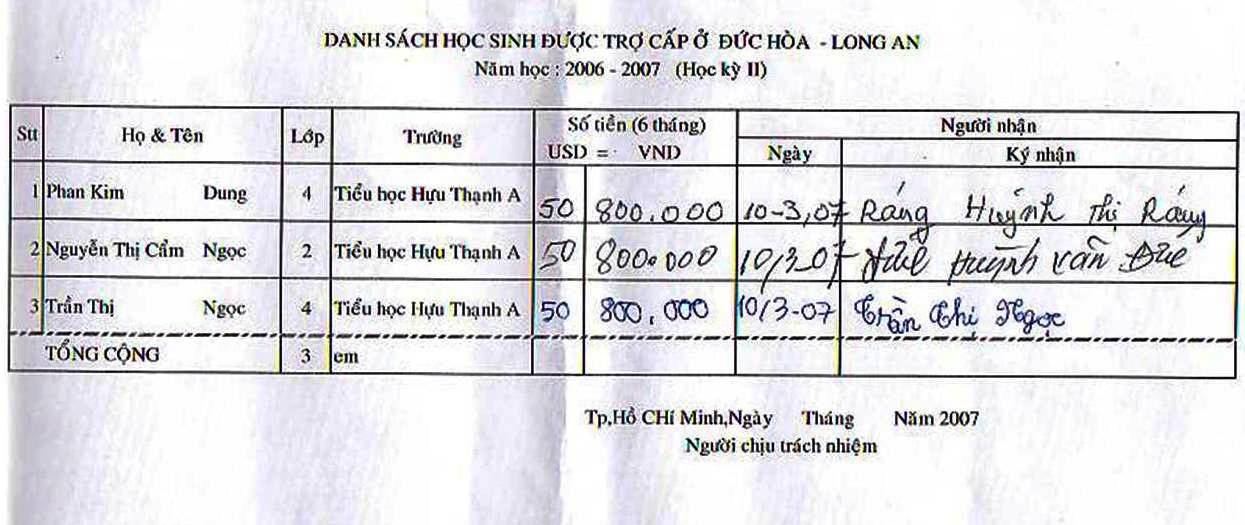 DANH SÁCH HỌC SINH ĐƯỢC TRỢ CẤP Ở ĐỨC HÒA - LONG AN
Năm học : 2006 - 2007 (Học kỳ II)
Stt Họ & Tên Lớp Trường Số tiền (6 tháng) Người nhận
USD = VND Ngày Ký nhận
1 Phan Kim Dung 4 Tiểu học Hựu Thạnh A 50 800.000 10-3,07 Ráng Huỳnh Thị Ráng
2 Nguyễn Thị Cẩm Ngọc 2 Tiểu học Hựu Thạnh A 50 800.000 10/3-07 Huỳnh Văn
3 Trần Thị Ngọc 4 Tiểu học Hựu Thạnh A 50 800,000 10/3-07 Trần Thị Ngọc
TỔNG CỘNG 3 em
Tp,Hồ CHí Minh,Ngày Tháng Năm 2007
Người chịu trách nhiệm